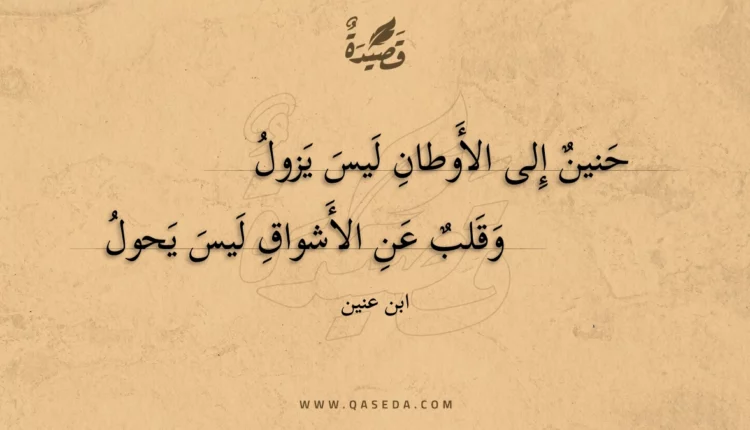 قَصِيدَةٌ
حَنينٌ إِلى الأَوطانِ لَيسَ يَزولُ
وَقَلبٌ عَنِ الأَشواقِ لَيسَ يَحولُ
ابن عنين
WWW.QASEDA.COM